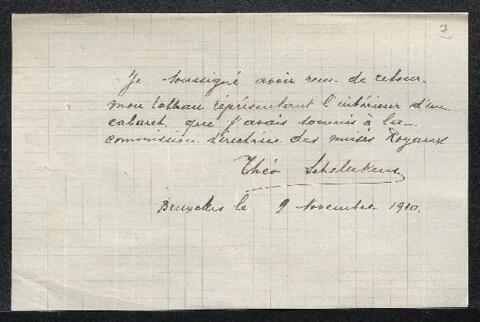 7
Je soussigné avoir reçu de retour
mon tableau réprésentant l'intérieur d'un
cabaret, que j'avais soumis à la
commission directrice des musés Royaux
Théo
Bruxelles le 9 Novembre 1910.